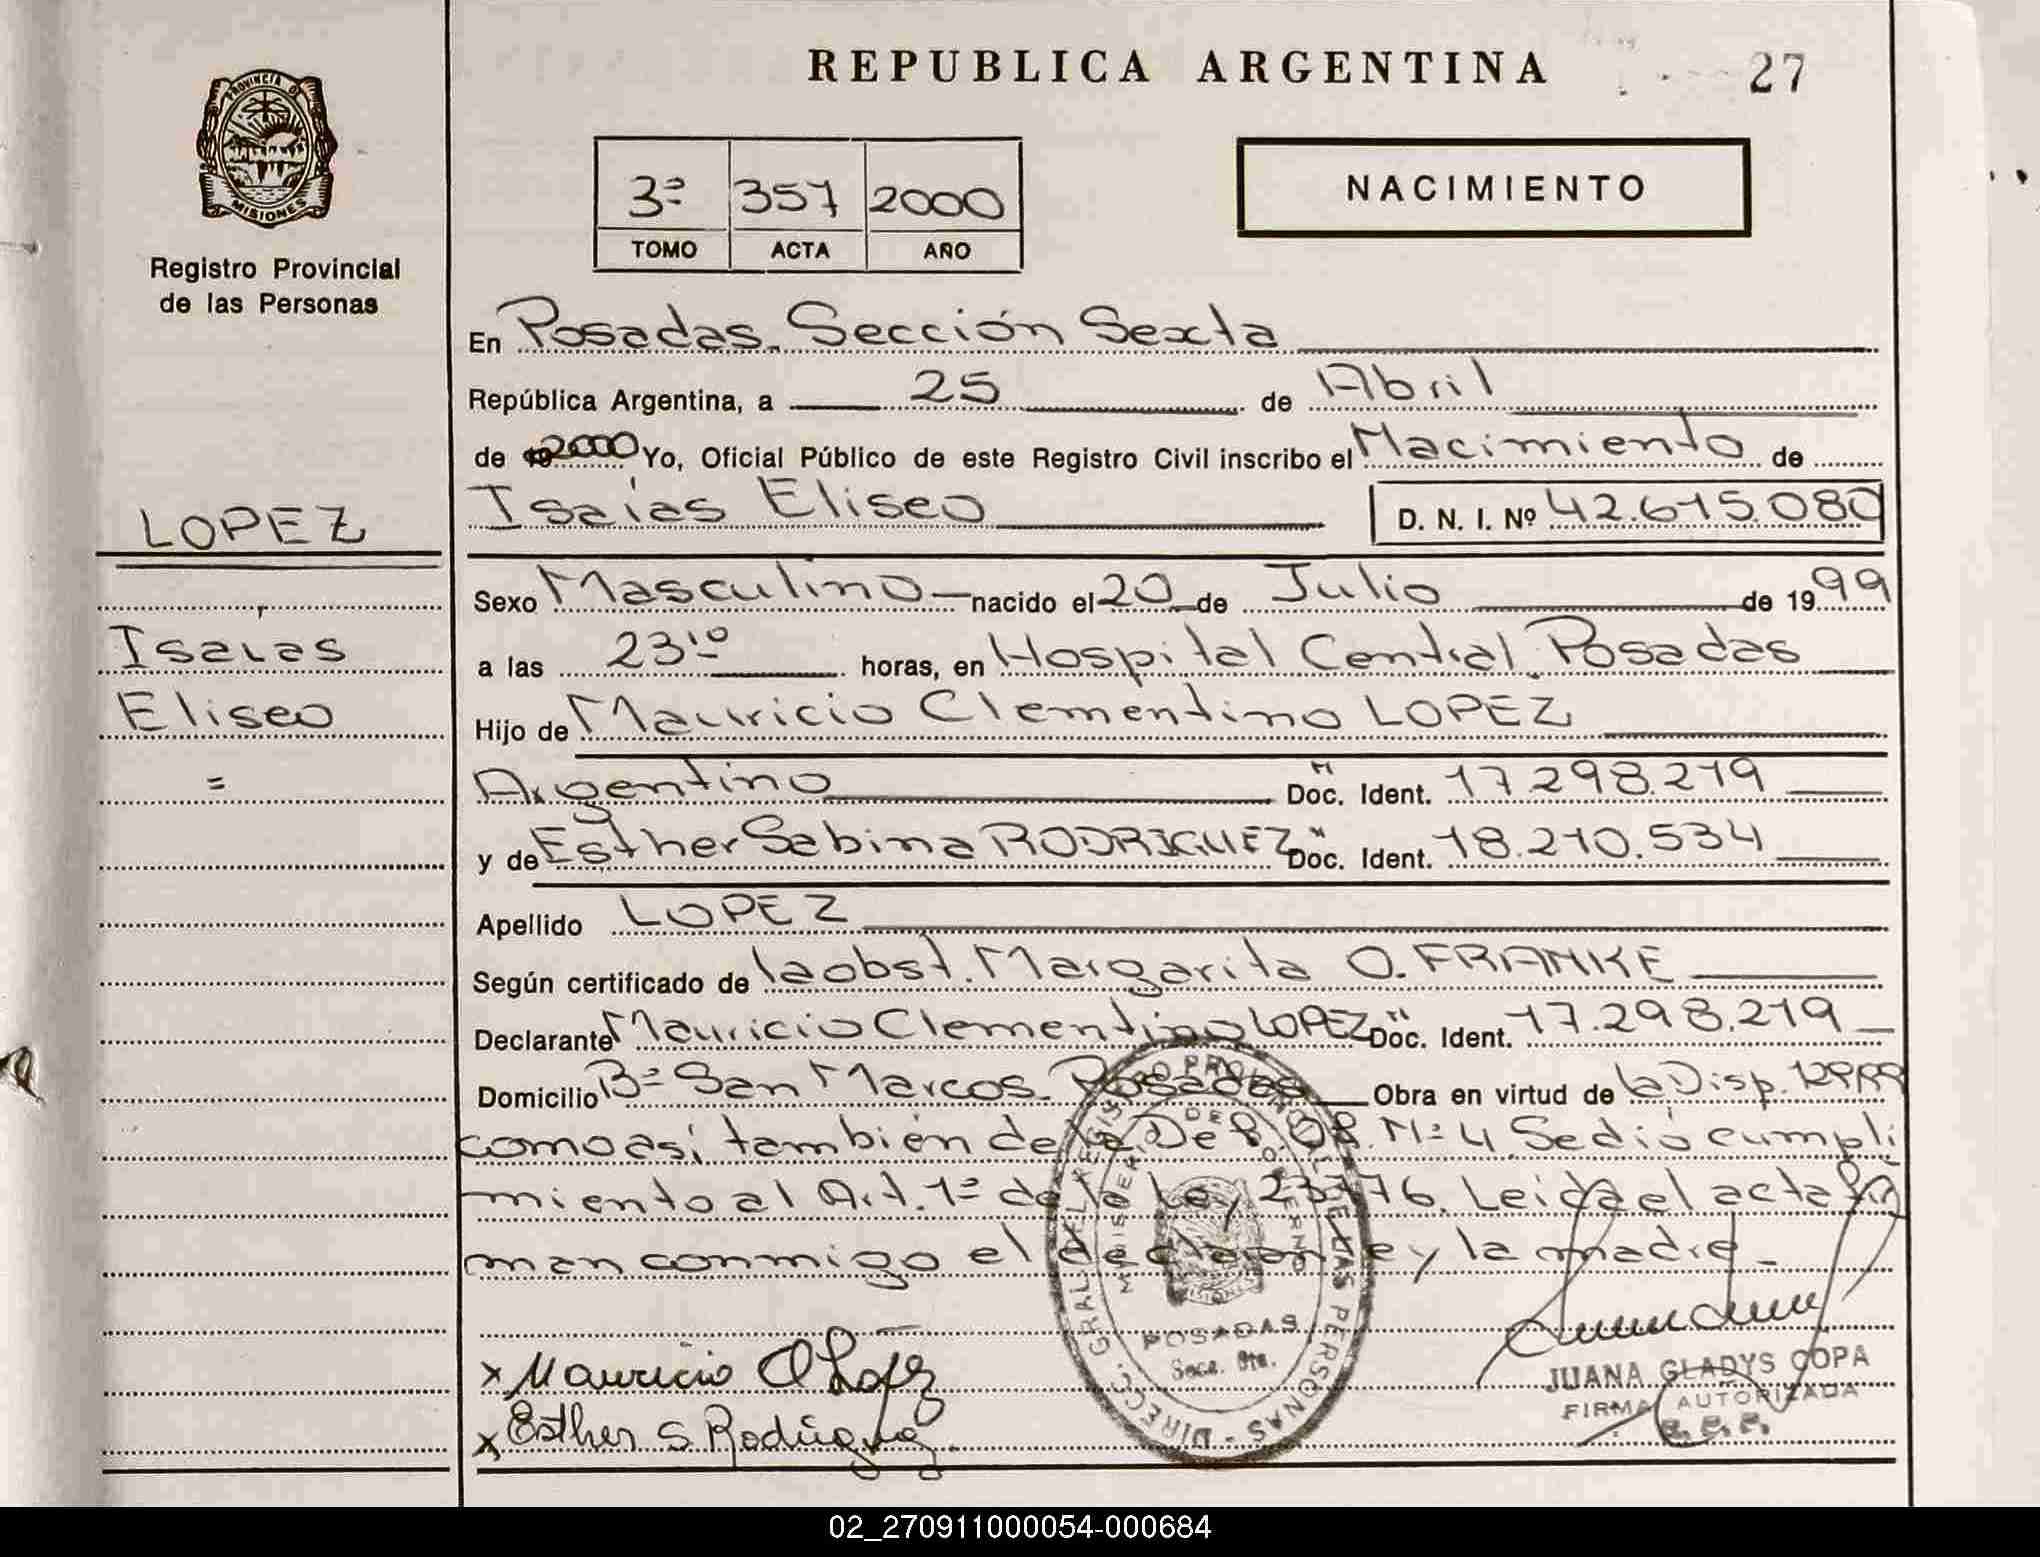 REPUBLICA ARGENTINA
27
PROVINCIA DE
MISIONES
Registro Provincial
de las Personas
3º 357 2000
TOMO ACTA AÑO
NACIMIENTO
En Posadas. Sección Sexta
República Argentina, a 25 de Abril
de 2000 Yo, Oficial Público de este Registro Civil inscribo el Nacimiento de
Isaías Eliseo D. N. I. Nº 42.615.080
LOPEZ
Sexo Masculino nacido el 20 de Julio de 1999
Isaias
a las 23¹⁰ horas, en Hospital Central Posadas
Eliseo
Hijo de Mauricio Clementino LOPEZ
=
Argentino Doc. Ident. 17.298.219
y de Esther Sabina RODRIGUEZ Doc. Ident. 18.210.534
Apellido LOPEZ
Según certificado de la obst. Margarita O. FRANKE
Declarante Mauricio Clementino LOPEZ Doc. Ident. 17.298.219
Domicilio Bº San Marcos. Posadas Obra en virtud de la Disp.
como así también de la Nº 4. Se dió cumpli
miento al Art. 1º de la Ley 23776. Leida el acta fir
man conmigo el declarante y la madre
x Mauricio C López
x Esther S. Rodriguez
DIRECC. GRAL. DEL REGISTRO PROVINCIAL DE LAS PERSONAS
MINISTERIO DE GOBIERNO
MISIONES
POSADAS
Secc. 6ta.
JUANA GLADYS COPA
FIRMA AUTORIZADA
02_270911000054-000684